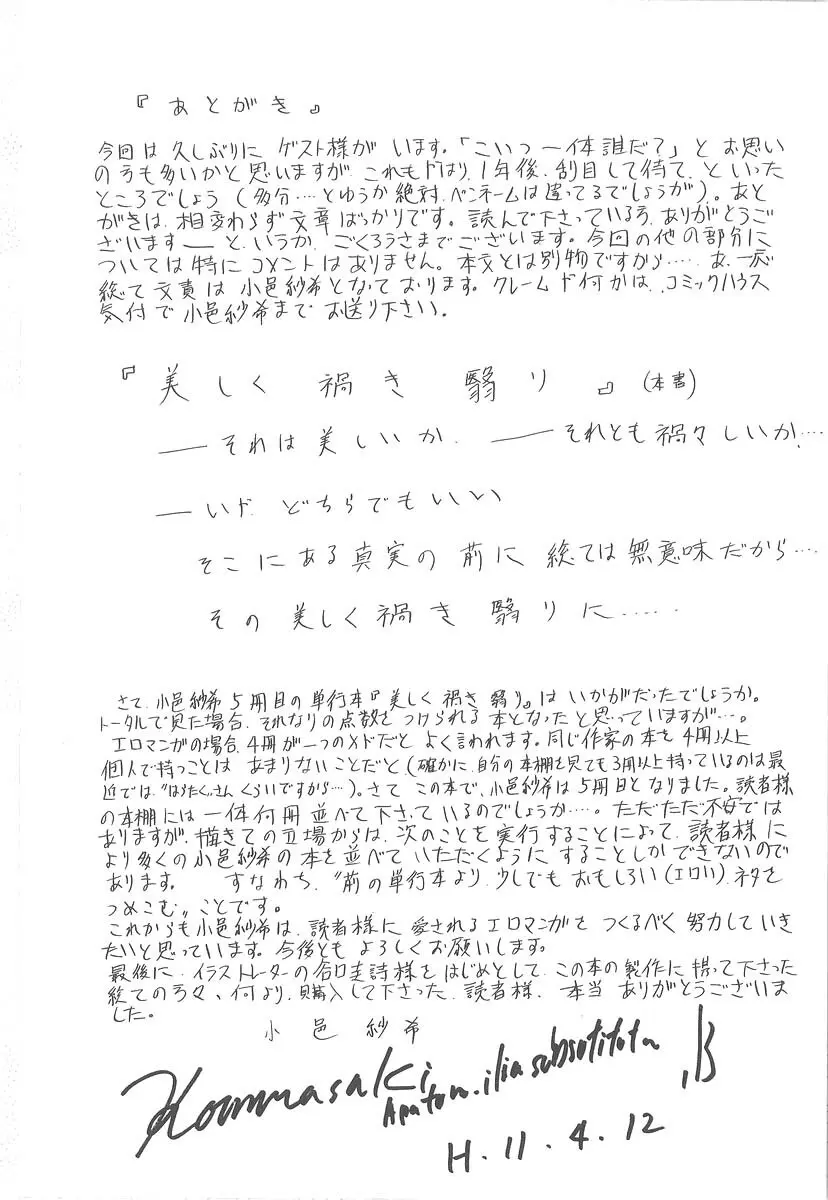 『あとがき』
今回は久しぶりにゲスト様がいます。「こいつ一体誰だ？」とお思い
の方も多いかと思いますが、これもやはり、1年後、刮目して待て、といった
ところでしょう(多分‥‥とゆうか絶対、ペンネームは違ってるでしょうが)。あと
がきは、相変わらず文章ばっかりです。読んで下さっている方、ありがとうご
ざいます——と、いうか、ごくろうさまでございます。今回の他の部分に
ついては特にコメントはありません。本文とは別物ですから‥‥。あ、一応
総て文責は小邑紗希となっております。クレームや何かは、コミックハウス
気付で小邑紗希までお送り下さい。
『美しく禍き翳り』(本書)
——それは美しいか、——それとも禍々しいか‥‥
——いや、どちらでもいい
そこにある真実の前に総ては無意味だから‥‥
その美しく禍き翳りに‥‥‥
さて、小邑紗希5冊目の単行本『美しく禍き翳り』はいかがだったでしょうか。
トータルで見た場合、それなりの点数をつけられる本となったと思っていますが‥‥。
エロマンガの場合、4冊が一つのメドだとよく言われます。同じ作家の本を4冊以上
個人で持つことはあまりないことだと(確かに、自分の本棚を見ても3冊以上持っているのは最
近では くらいですから‥‥)。さてこの本で、小邑紗希は5冊目となりました。読者様
の本棚には一体何冊並べて下さっているのでしょうか‥‥。ただただ不安では
ありますが、描きての立場からは、次のことを実行することによって、読者様に
より多くの小邑紗希の本を並べていただくようにすることしかできないので
あります。 すなわち、"前の単行本より、少しでもおもしろい(エロい)ネタを
つめこむ"ことです。
これからも小邑紗希は、読者様に愛されるエロマンガをつくるべく努力していき
たいと思っています。今後ともよろしくお願いします。
最後に、イラストレーターの 様をはじめとして、この本の製作に携って下さった
総ての方々、何より、購入して下さった、読者様、本当ありがとうございま
した。
小邑紗希
Komurasaki
H.11.4.12